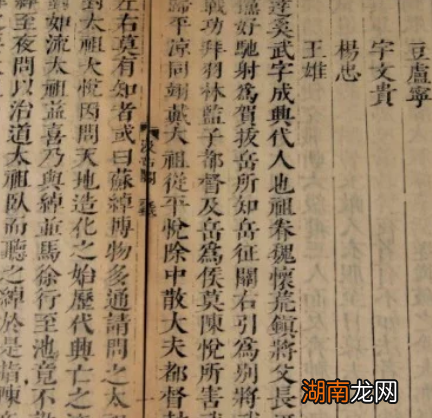 豆盧寧
宇文貴
楊忠
王雄
達奚武字成興代人也祖眷魏懷荒鎮將父長
好馳射爲賀拔岳所知岳征關右引爲別將
戰功拜羽林監子都督及岳爲侯莫陳悅所害
歸平凉同翊戴太祖從平悅除中散大夫都督
汲古閣
左右莫有知者或曰蘇綽博物多通請問之太
太祖大悅因問天地造化之始歷代興亡之
如流太祖益喜乃與綽並馬徐行至池竟不
綽至夜問以治道太祖臥而聽之綽於是指陳
湖南龙网